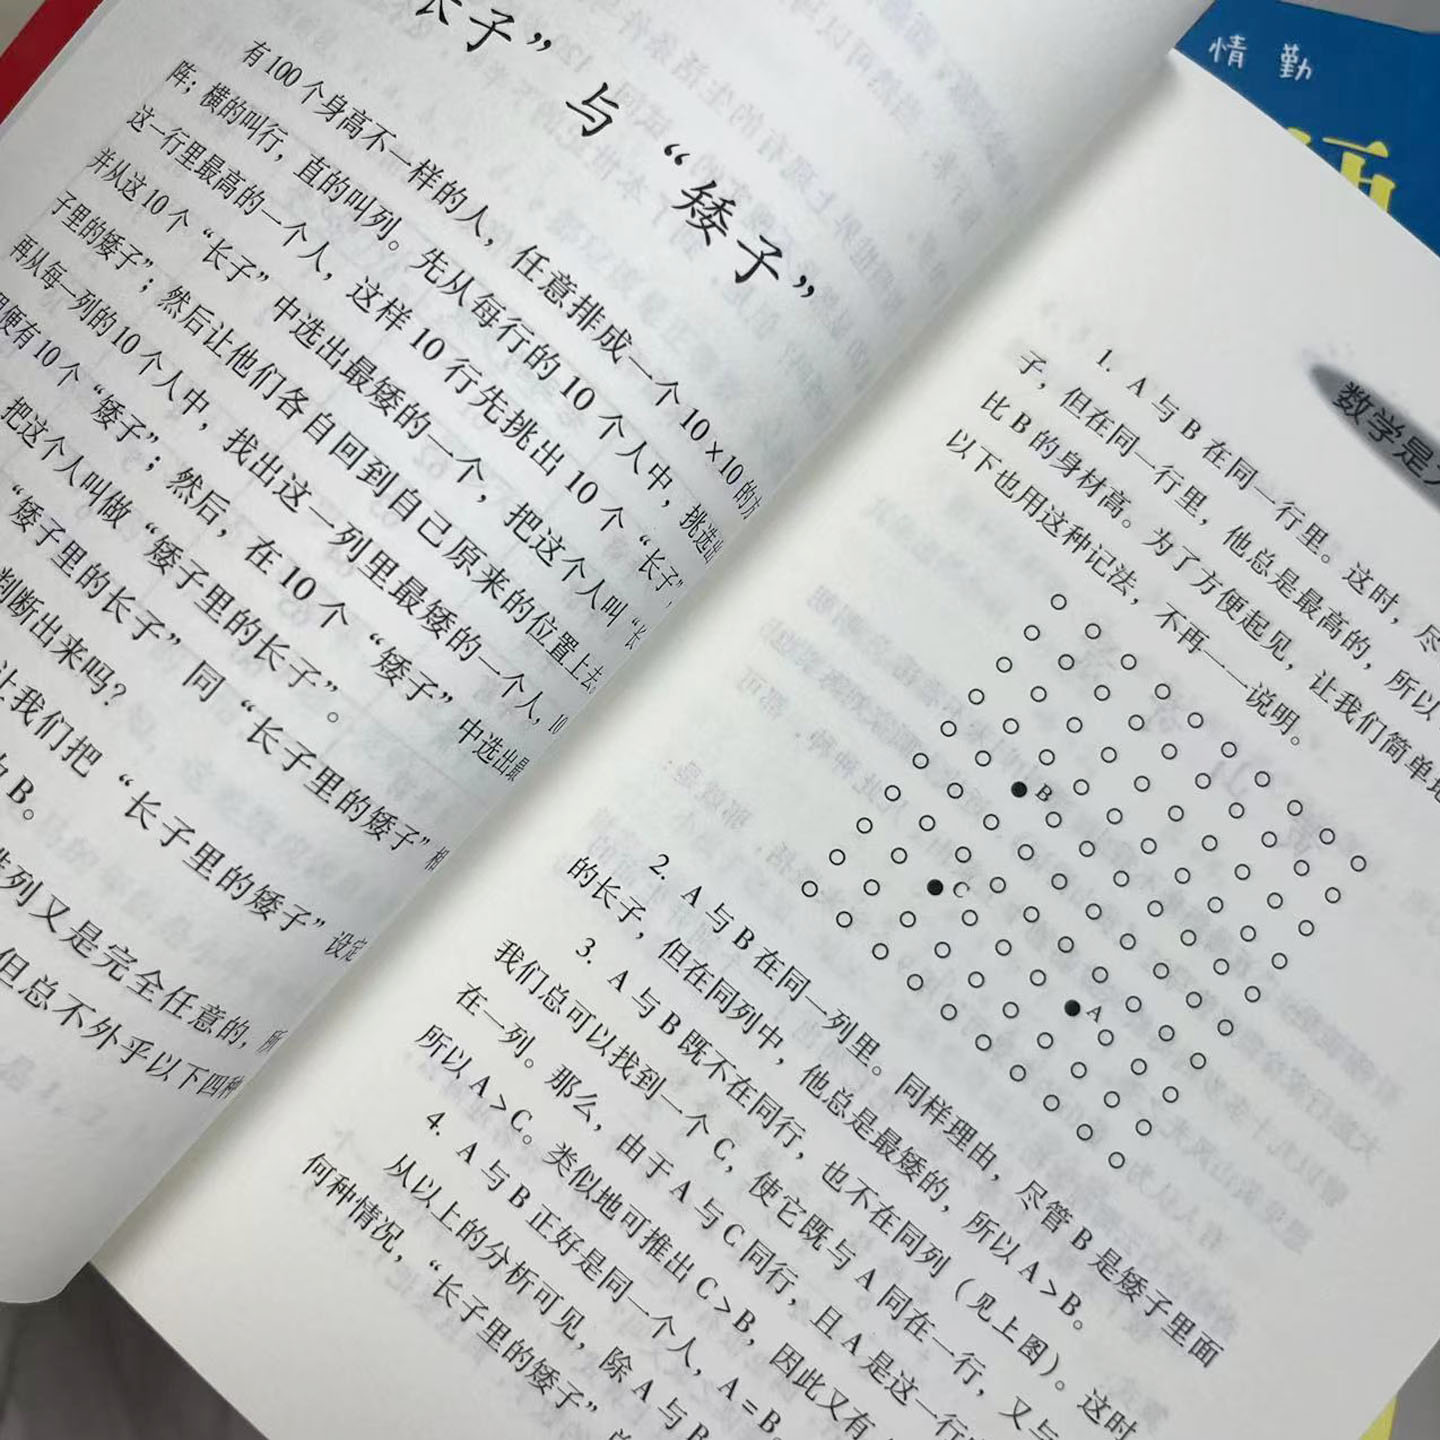 长子”与“矮子”
有100个身高不一样的人，任意排成一个10×10的方
阵；横的叫行，直的叫列。先从每行的10个人中，挑选出
这一行里最高的一个人，这样10行先挑出10个“长子”，
并从这10个“长子”中选出最矮的一个，把这个人叫“长
子里的矮子”；然后让他们各自回到自己原来的位置上去。
再从每一列的10个人中，找出这一列里最矮的一个人，10
便有10个“矮子”；然后，在10个“矮子”中选出最
把这个人叫做“矮子里的长子”。
“矮子里的长子”同“长子里的矮子”相
判断出来吗？
让我们把“长子里的矮子”设定
B。
列又是完全任意的，所
但总不外乎以下四种
数学是
1. A与B在同一行里。这时，尽
子，但在同一行里，他总是最高的，所以
比B的身材高。为了方便起见，让我们简单地
以下也用这种记法，不再一一说明。
B
C
A
2. A与B在同一列里。同样理由，尽管B是矮子里面
的长子，但在同列中，他总是最矮的，所以A>B。
3. A与B既不在同行，也不在同列（见上图）。这时
我们总可以找到一个C，使它既与A同在一行，又与
在一列。那么，由于A与C同行，且A是这一行
所以A>C。类似地可推出C>B，因此又有
4. A与B正好是同一个人，A=B。
从以上的分析可见，除A与B
何种情况，“长子里的矮子”
情 勤